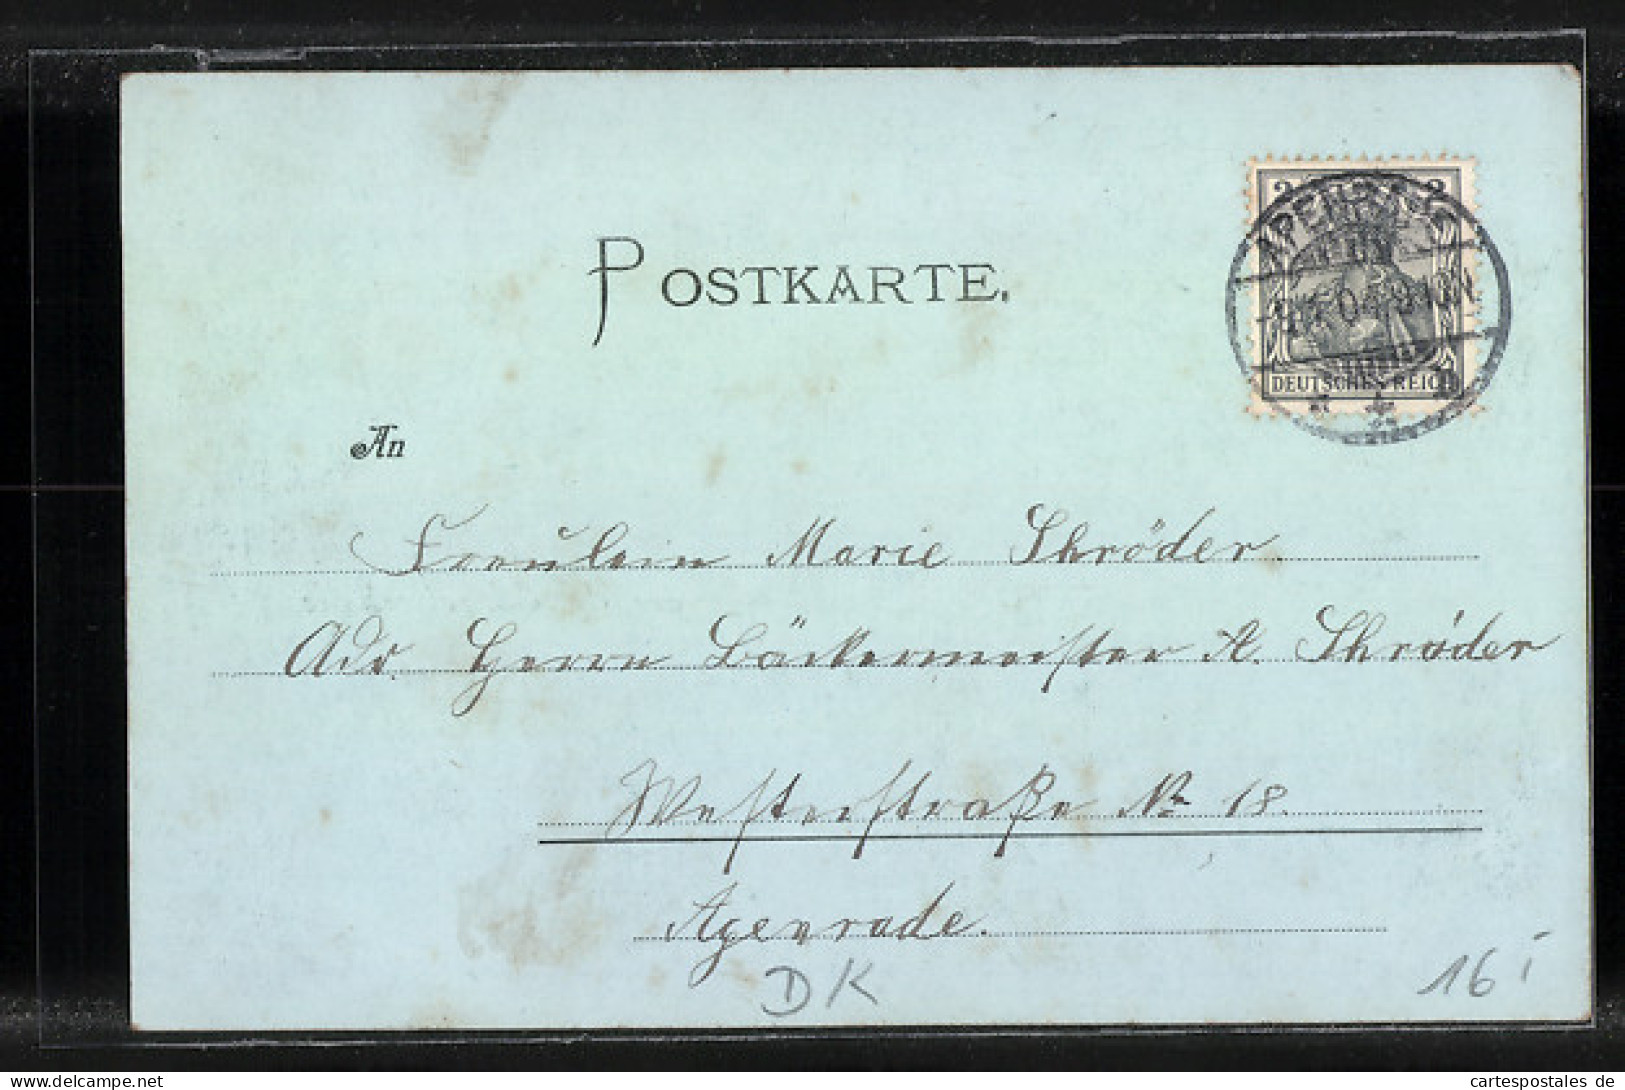 POSTKARTE.
DEUTSCHES REICH
An
Fräulein Marie Schröder.
Adr. Herrn Bäckermeister A. Schröder
Westerstraße № 18.
Apenrade.
DK
16
cartespostales.de